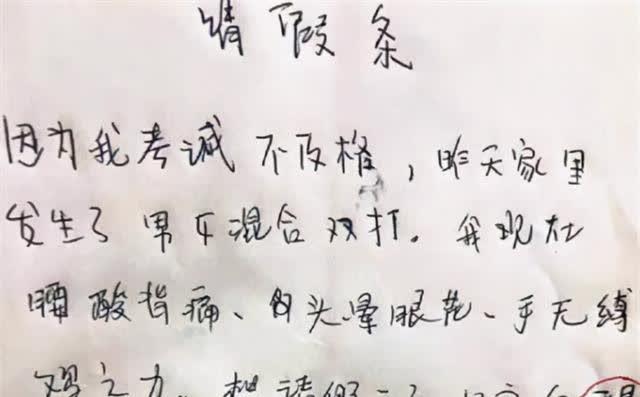 请假条
因为我考试不及格，昨天家里
发生了男女混合双打。我现在
腰酸背痛、头晕眼花、手无缚
鸡之力。想请假